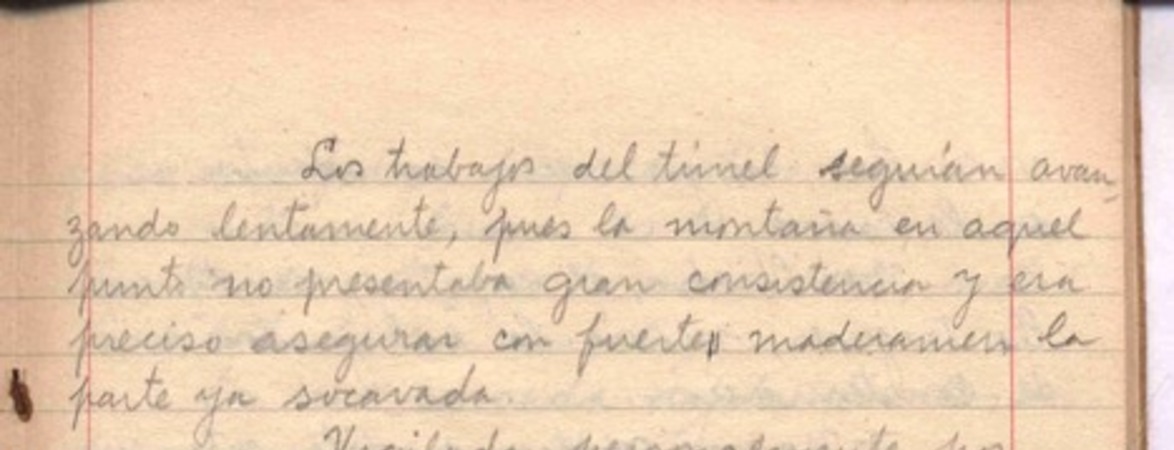 Los trabajos del túnel seguían avan-
zando lentamente, pues la montaña en aquel
punto no presentaba gran consistencia y era
preciso asegurar con fuerte maderamen la
parte ya socavada.
personalmente por